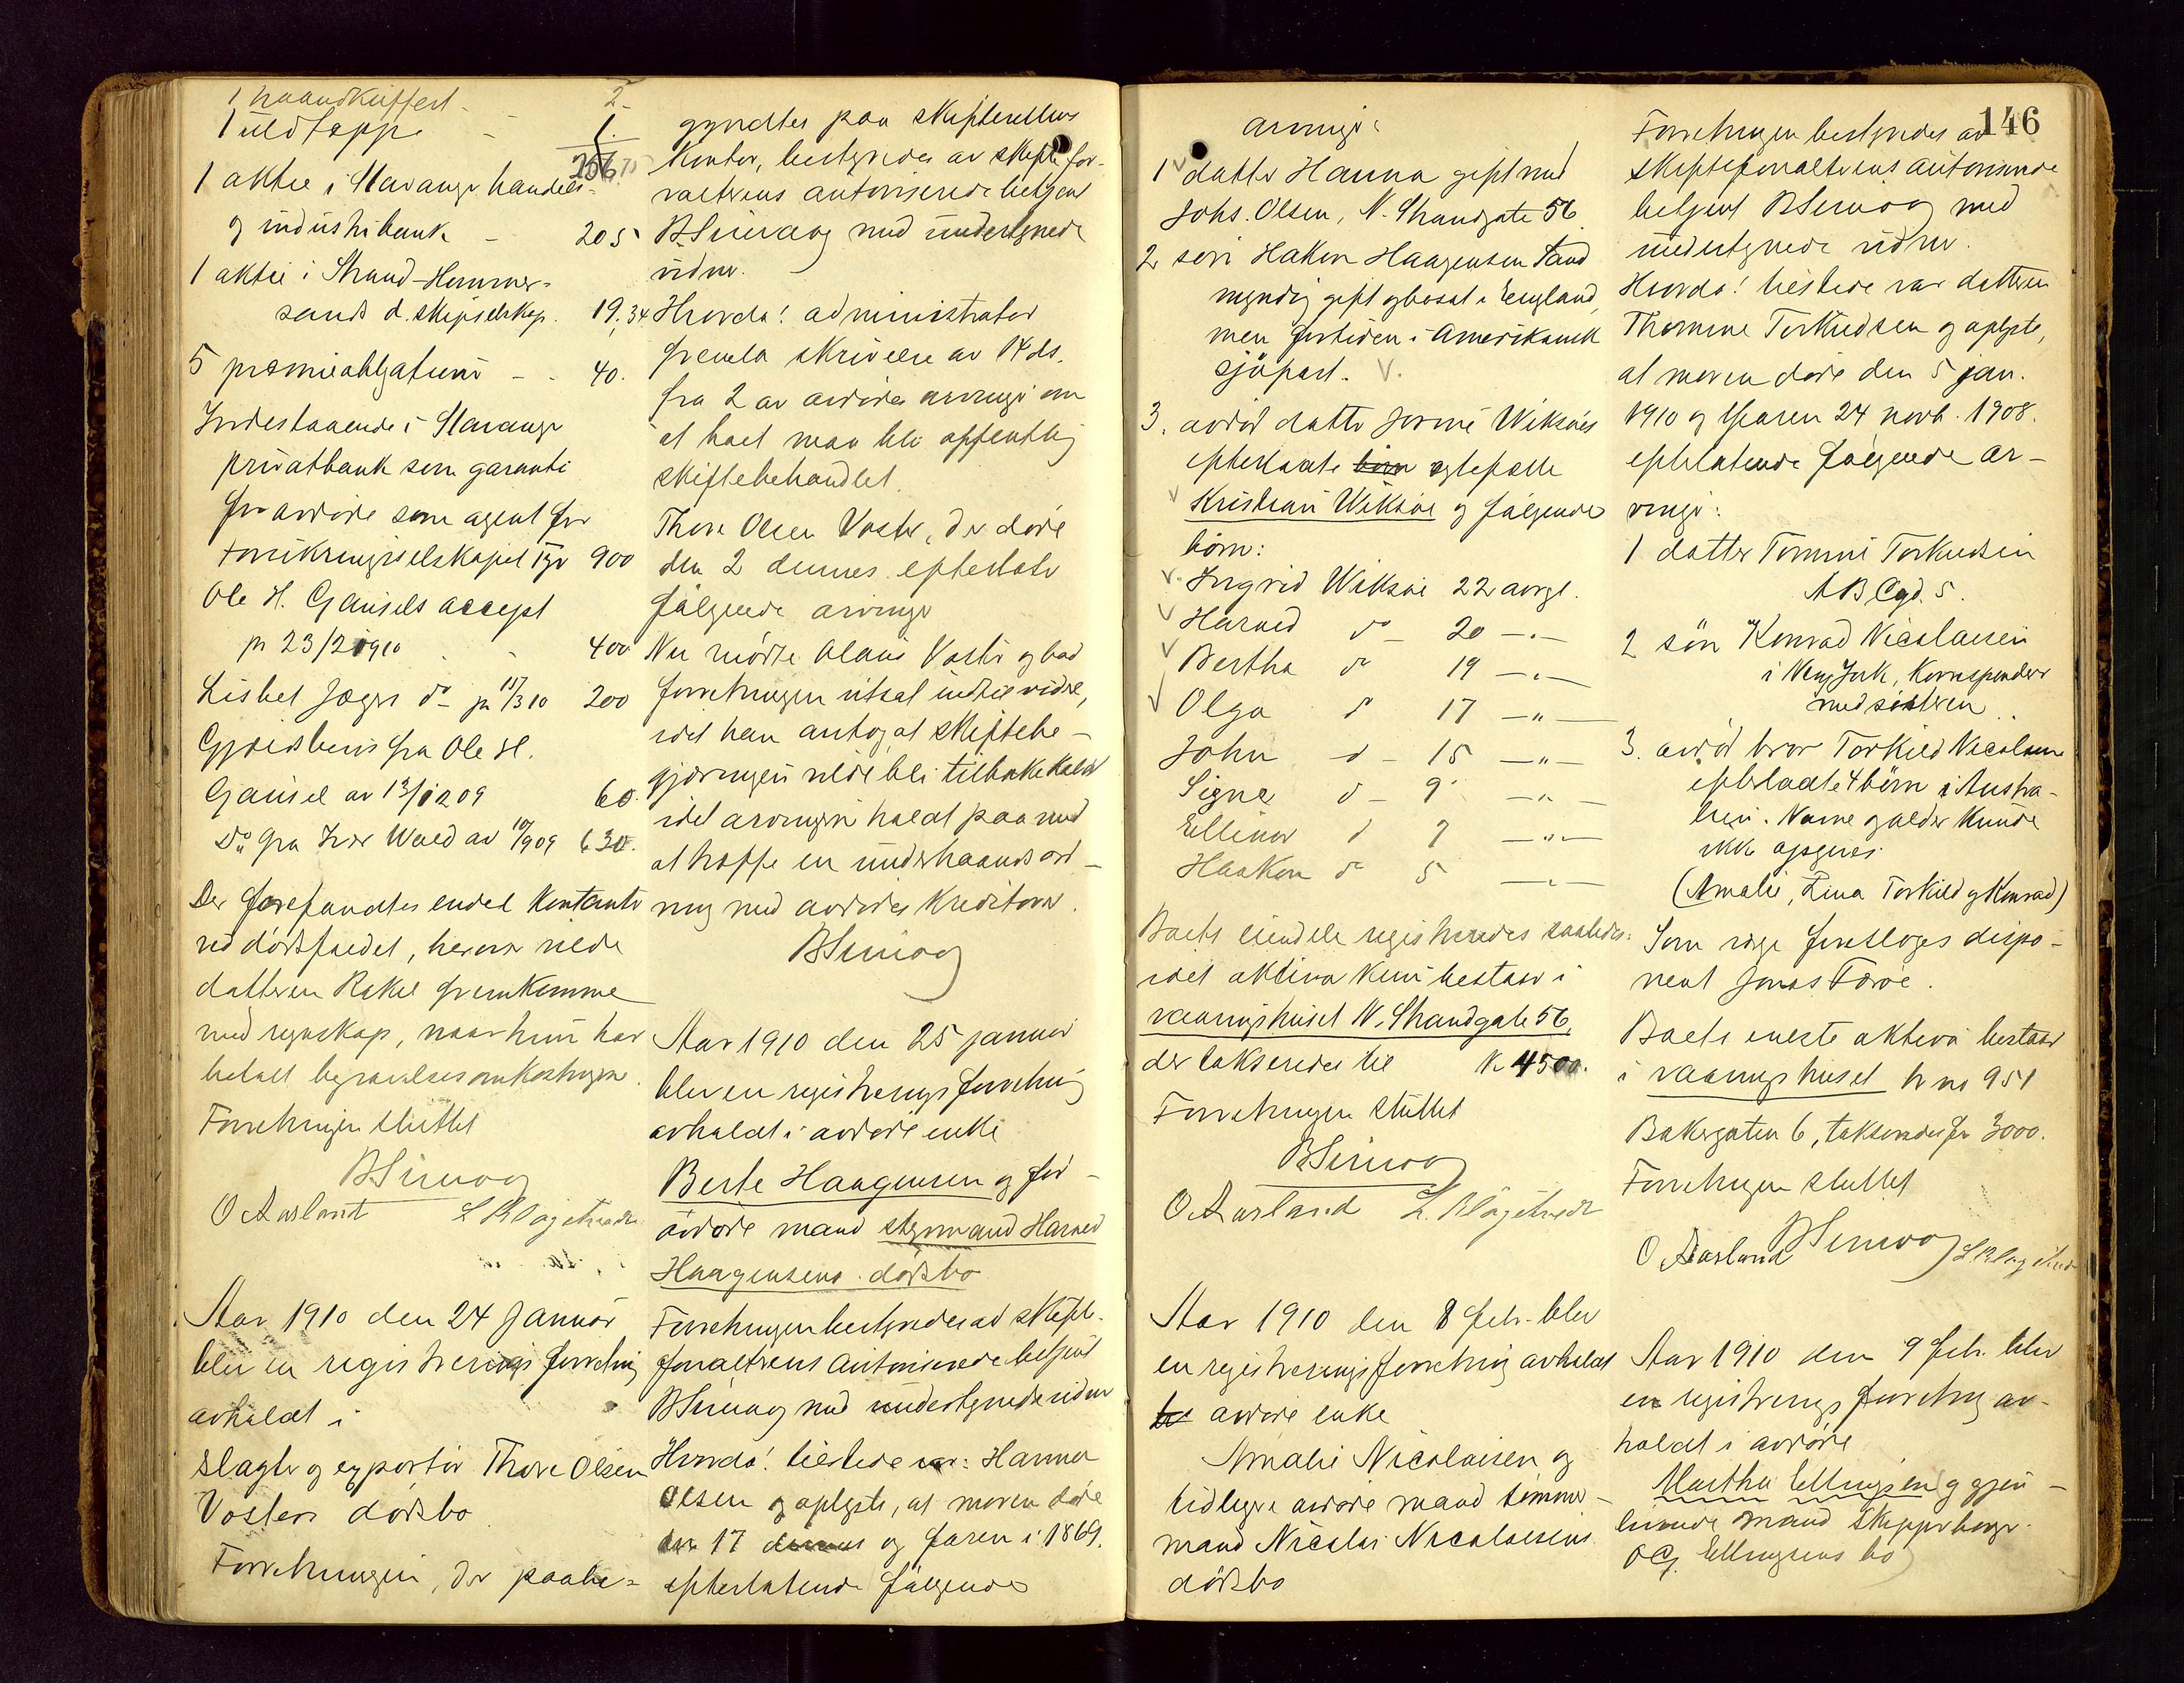 1 haandkuffert - 2.
1 uldteppe - 1.
256.75
1 aktie i Stavanger handels-
og industribank - 205
1 aktie i Strand-Hommer-
sands d. skipselskap. 19,34
5 præmieobligationer - - 40.
Indestaaende i Stavanger
privatbank som garanti
for avdøde som agent for
forsikringsselskapet Tyr 900
Ole H. Gausels accept
pr 23/2 1910 - - 400
Lisbet Jæger do pr 11/3 10 200
Gjældsbevis fra Ole H.
Gausel av 13/12 09 60.
Do fra Iver Wold av 10/9 09 630.
Der forefandtes endel kontanter
ved dødsfaldet, herover vilde
datteren Rakel fremkomme
med regnskap, naar hun har
betalt begravelsesomkostningerne.
Forretningen sluttet
BSirevaag
O Aarland L Bløgehvedt
Aar 1910 den 24 Januar
blev en registreringsforretning
avholdt i
slagter og exportør Thore Olsen
Vosters dødsbo
Forretningen, der paabe-
gyndtes paa skifterettens
kontor, bestyredes av skiftefor-
valterens autoriserede betjent
BSirevaag med undertegnede
vidner.
Hvorda! administrator
fremla skrivelse av 14 ds.
fra 2 av avdødes arvinger om
at boet maa bli offentlig
skiftebehandlet.
Thore Olsen Voster, der døde
den 2 dennes efterlater
følgende arvinger
Nu mødte Olaus Voster og bad
forretningen utsat indtil videre,
idet han antog at skiftebe-
gjæringen vilde bli tilbakekaldt
idet arvingerne holdt paa med
at træffe en underhaandsord-
ning med avdødes kreditorer.
BSirevaag
Aar 1910 den 25 januar
blev en registreringsforretning
avholdt i avdøde enke
Berte Haagensen og før-
avdøde mand styrmand Harald
Haagensens dødsbo
Forretningen bestyredes ad skifte-
forvalterens autoriserede betjent
BSirevaag med undertegnede vidner
Hvorda! tilstede var: Hanna
Olsen og oplyste, at moren døde
den 17 dennes og faren i 1869.
efterlatende følgende
146
arvinger:
1 datter Hanna gift med
Johs. Olsen, N. Strandgate 56
2 søn Hakon Haagensen Sand
myndig gift og bosat i England,
men for tiden i Amerikansk
sjøfart.
3. avdød datter Jørine Wiksøes
efterlatte børn egtefælle
Kristian Wiksøe og følgende
børn:
Ingrid Wiksøe 22 aargl.
Harald do - 20 -"-
Bertha do 19 -"-
Olga do 17 -"-
John do - 15 -"-
Signe do - 9 -"-
Ellinor do 7 -"-
Haakon do 5 -"-
Boets eiendele registreredes saaledes:
idet aktiva kun bestaar i
vaaningshuset N. Strandgate 56,
der takseredes til kr 4500.
Forretningen sluttet
BSirevaag
O Aarland L. Bløgehvedt
Aar 1910 den 8 febr. blev
en registreringsforretning avholdt
hos avdøde enke
Amalie Nicolaisen og
tidligere avdøde mand tømmer-
mand Nicolai Nicolaisens
dødsbo
Forretningen bestyredes av
skifteforvalterens autoriserede
betjent BSirevaag med
undertegnede vidner.
Hvorda! tilstede var datteren
Thomine Torkildsen og oplyste,
at moren døde den 5 jan.
1910 og faren 24 novb. 1908.
efterlatende følgende ar-
vinger:
1 datter Tomine Torkildsen
ABCgd. 5.
2 søn Konrad Nicolaisen
i New York, korresponderer
med søsteren
3. avdød bror Torkild Nicolaisen
efterlatte 4 børn i Austra-
lien. Navne og alder kunde
ikke opgives
(Amalie, Lina Torkild og Konrad)
Som værge foresloges dispo-
nent Jonas Færøe.
Boets eneste aktiva bestaar
i vaaningshuset br no 951
Bakergaten 6, takseredes for 3000.
Forretningen sluttet
BSirevaag
O Aarland L Bløgehvedt
Aar 1910 den 9 febr. blev
en registreringsforretning av-
holdt i avdøde
Martha Ellingsen og gjen-
levende mand skipsbygger
O G. Ellingsens bo